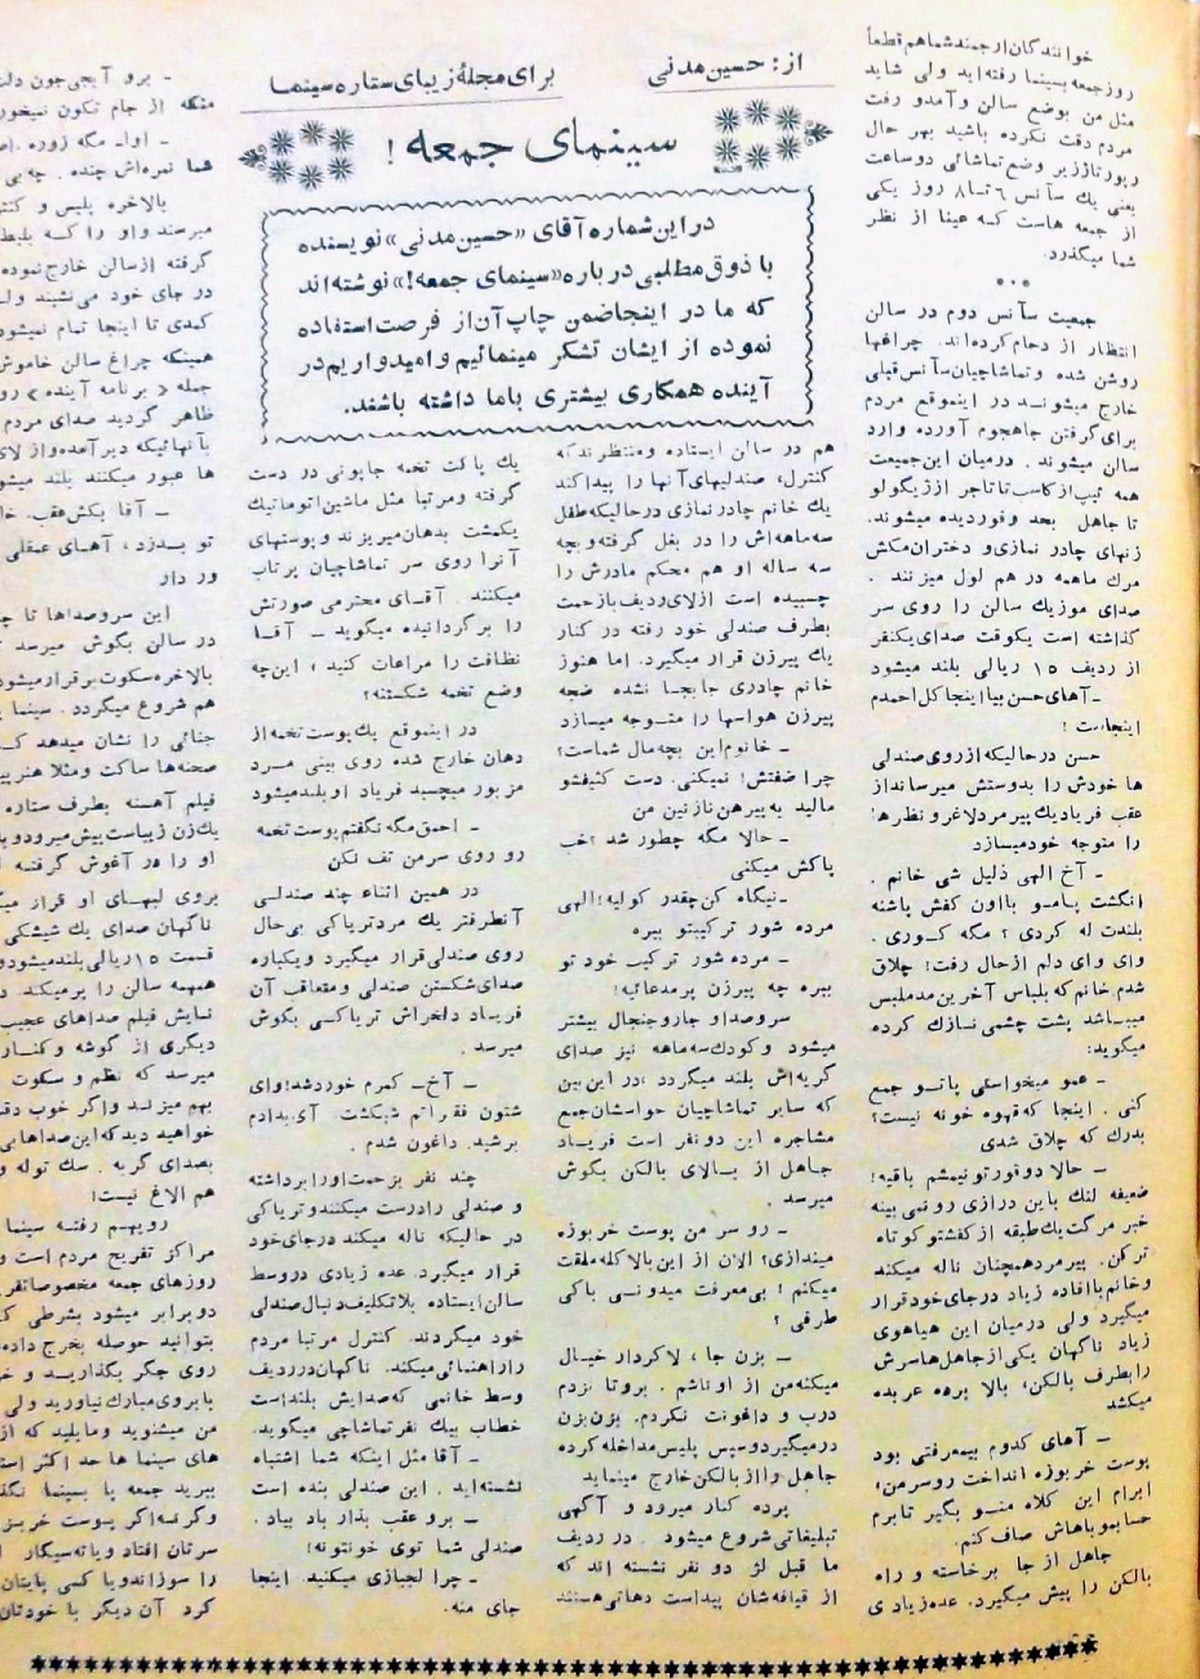 از: حسین مدنی
برای مجلهٔ زیبای ستاره سینما
سینمای جمعه!
در این شماره آقای «حسین مدنی» نویسنده
با ذوق مطلبی درباره «سینمای جمعه!» نوشته‌اند
که ما در اینجا ضمن چاپ آن از فرصت استفاده
نموده از ایشان تشکر مینمائیم و امیدواریم در
آینده همکاری بیشتری با ما داشته باشند.
خوانندگان ارجمند شما هم قطعاً
روز جمعه بسینما رفته‌اید ولی شاید
مثل من بوضع سالن و آمد و رفت
مردم دقت نکرده باشید بهر حال
رپورتاژ زیر وضع تماشائی دو ساعت
یعنی یك سآنس ٦ تا ٨ روز یکی
از جمعه هاست که عینا از نظر
شما میگذرد.
جمعیت سآنس دوم در سالن
انتظار ازدحام کرده‌اند. چراغها
روشن شده و تماشاچیان سآنس قبلی
خارج میشوند در اینموقع مردم
برای گرفتن جا هجوم آورده وارد
سالن میشوند. درمیان این جمیعت
همه تیپ از کاسب تا تاجر از ژیگولو
تا جاهل بحد وفور دیده میشوند.
زنهای چادر نمازی و دختران مکش
مرك ماهمه در هم لول میزنند.
صدای موزیك سالن را روی سر
گذاشته است یکوقت صدای یکنفر
از ردیف ١٥ ریالی بلند میشود
ـ آهای حسن بیا اینجا کل احمدم
اینجاست!
حسن در حالیکه از روی صندلی
ها خودش را بدوستش میرساند از
عقب فریاد یك پیرمرد لاغر و نظرها
را متوجه خود میسازد
ـ آخ الهی ذلیل شی خانم.
انگشت پامو با اون کفش پاشنه
بلندت له کردی؟ مگه کوری.
وای وای دلم از حال رفت! چلاق
شدم. خانم که بلباس آخرین مد ملبس
میباشد پشت چشمی نازك کرده
میگوید:
ـ عمو میخواستی پاتو جمع
کنی. اینجا که قهوه خونه نیست؟
بدرك که چلاق شدی
ـ حالا دوقورتونیمشم باقیه!
ضعیفه لنك باین درازی رو نمی بینه
خبر مرگت یك طبقه از کفشتو کوتاه
ترکن. پیرمرد همچنان ناله میکند
و خانم با افاده زیاد درجای خود قرار
میگیرد ولی درمیان این هیاهوی
زیاد ناگهان یکی از جاهل ها سرش
را بطرف بالکن، بالا برده عربده
میکشد
ـ آهای کدوم بیمعرفتی بود
پوست خربوزه انداخت رو سر من،
ابرام این کلاه منو بگیر تا برم
حسابمو باهاش صاف کنم.
جاهل از جا برخاسته و راه
بالکن را پیش میگیرد. عده زیادی
هم در سالن ایستاده و منتظرند که
کنترل، صندلیهای آنها را پیدا کند
یك خانم چادر نمازی درحالیکه طفل
سه ماهه‌اش را در بغل گرفته و بچه
سه ساله او هم محکم مادرش را
چسبیده است از لای ردیف بازحمت
بطرف صندلی خود رفته در کنار
یك پیرزن قرار میگیرد. اما هنوز
خانم چادری جابجا نشده ضجه
پیرزن هواسها را متوجه میسازد
ـ خانوم این بچه مال شماست؟
چرا ضفتش! نمیکنی. دست کثیفشو
مالید به پیرهن نازنین من
ـ حالا مگه چطور شد؟ خب
پاکش میکنی
ـ نیگاه کن چقدر کولیه! الهی
مرده شور ترکیبتو ببره
ـ مرده شور ترکیب خود تو
ببره چه پیرزن پرمدعائیه!
سروصدا و جاروجنجال بیشتر
میشود و کودك سه ماهه نیز صدای
گریه‌اش بلند میگردد، در این بین
که سایر تماشاچیان حواسشان جمع
مشاجره این دو نفر است فریاد
جاهل از بالای بالکن بگوش
میرسد.
ـ رو سر من پوست خربوزه
میندازی؟ الان از این بالا کله ملقت
میکنم! بی معرفت میدونی باکی
طرفی؟
ـ بزن جا، لاکردار خیال
میکنه من از اوناشم. برو تا نزدم
درب و داغونت نکردم. بزن بزن
درمیگیرد و سپس پلیس مداخله کرده
جاهل را از بالکن خارج مینماید
پرده کنار میرود و آگهی
تبلیغاتی شروع میشود. در ردیف
ما قبل لژ دو نفر نشسته اند که
از قیافه‌شان پیداست دهاتی هستند
یك پاکت تخمه جاپونی در دست
گرفته و مرتبا مثل ماشین اتوماتیك
یکمشت بدهان میریزند و پوستهای
آنرا روی سر تماشاچیان پرتاب
میکنند. آقای محترمی صورتش
را برگردانیده میگوید ـ آقا
نظافت را مراعات کنید، این چه
وضع تخمه شکستنه؟
در اینموقع یك پوست تخمه از
دهان خارج شده روی بینی مرد
مزبور میچسبد فریاد او بلند میشود
ـ احمق مگه نگفتم پوست تخمه
رو روی سر من تف نکن
در همین اثناء چند صندلی
آنطرفتر یك مرد تریاکی بی حال
روی صندلی قرار میگیرد و یکباره
صدای شکستن صندلی و متعاقب آن
فریاد دلخراش تریاکی بگوش
میرسد.
ـ آخ ـ کمرم خورد شد! وای
ستون فقراتم شیکشت. آی بدادم
برشید. داغون شدم.
چند نفر بزحمت اورا برداشته
و صندلی را درست میکنند و تریاکی
در حالیکه ناله میکند درجای خود
قرار میگیرد. عده زیادی در وسط
سالن ایستاده بلاتکلیف دنبال صندلی
خود میگردند. کنترل مرتبا مردم
را راهنمائی میکند. ناگهان در ردیف
وسط خانمی که صدایش بلند است
خطاب بیك نفر تماشاچی میگوید.
ـ آقا مثل اینکه شما اشتباه
نشسته‌اید. این صندلی بنده است
ـ برو عقب بذار باد بیاد.
صندلی شما توی خونتونه!
ـ چرا لجبازی میکنید. اینجا
جای منه.
ـ برو آبجی جون
منکه از جام تکون نمیخور
ـ اوا ـ مگه زوره.
شما نمره‌اش چنده.
بالاخره پلیس و
میرسند و او را که
گرفته از سالن خارج نموده
در جای خود می نشیند
کمدی تا اینجا تمام نمیشود
همینکه چراغ سالن خاموش
جمله «برنامه آینده»
ظاهر گردید صدای مردم
بآنهائیکه دیر آمده و از لای
ها عبور میکنند بلند
ـ آقا بکش عقب.
تو بدزد، آهای عمقلی
ور دار
این سروصداها تا
در سالن بگوش میرسد
بالاخره سکوت برقرار میشود
هم شروع میگردد. سینما
جنائی را نشان میدهد
صحنه‌ها ساکت و مثلا
فیلم آهسته بطرف ستاره
یك زن زیباست پیش میرود و
او را در آغوش گرفته
بروی لبهای او قرار
ناگهان صدای یك شیشکی
قسمت ١٥ ریالی بلند میشود و
همهمه سالن را پر میکند.
نمایش فیلم صداهای عجیب
دیگری از گوشه و کنار
میرسد که نظم و سکوت
بهم میزند و اگر خوب
خواهید دید که این صداها
بصدای گربه. سك توله و
هم الاغ نیست!
رویهم رفته سینما
مراکز تفریح مردم است و
روزهای جمعه مخصوصا
دو برابر میشود بشرطی
بتوانید حوصله بخرج داده
روی جگر بگذارید و
بابروی مبارك نیاورید ولی
من میشنوید و مایلید که از
های سینما ها حد اکثر
ببرید جمعه پا بسینما
وگرنه اگر پوست
سرتان افتاد و یا ته سیگار
را سوزاند و یا کسی پایتان
کرد آن دیگر با خودتان